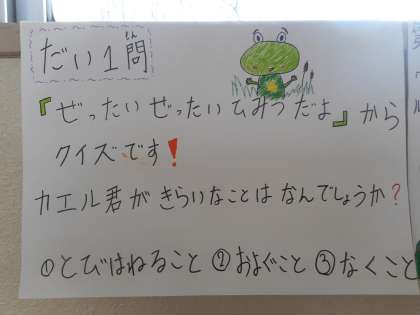 だい1問
もん
『ぜったいぜったいひみつだよ』から
クイズです!
カエル君がきらいなことはなんでしょうか?
①とびはねること ②およぐこと ③なくこと